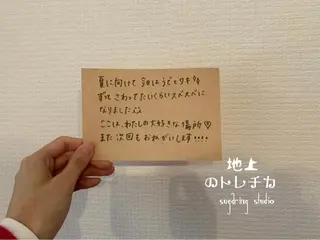 夏に向けて 今回はうでとワキ
ずっと さわってたいくらいスベスベに
なりました
ここは、わたしの大好きな場所♡
また次回もおねがいします
地上
のトレチカ
sugaring studio